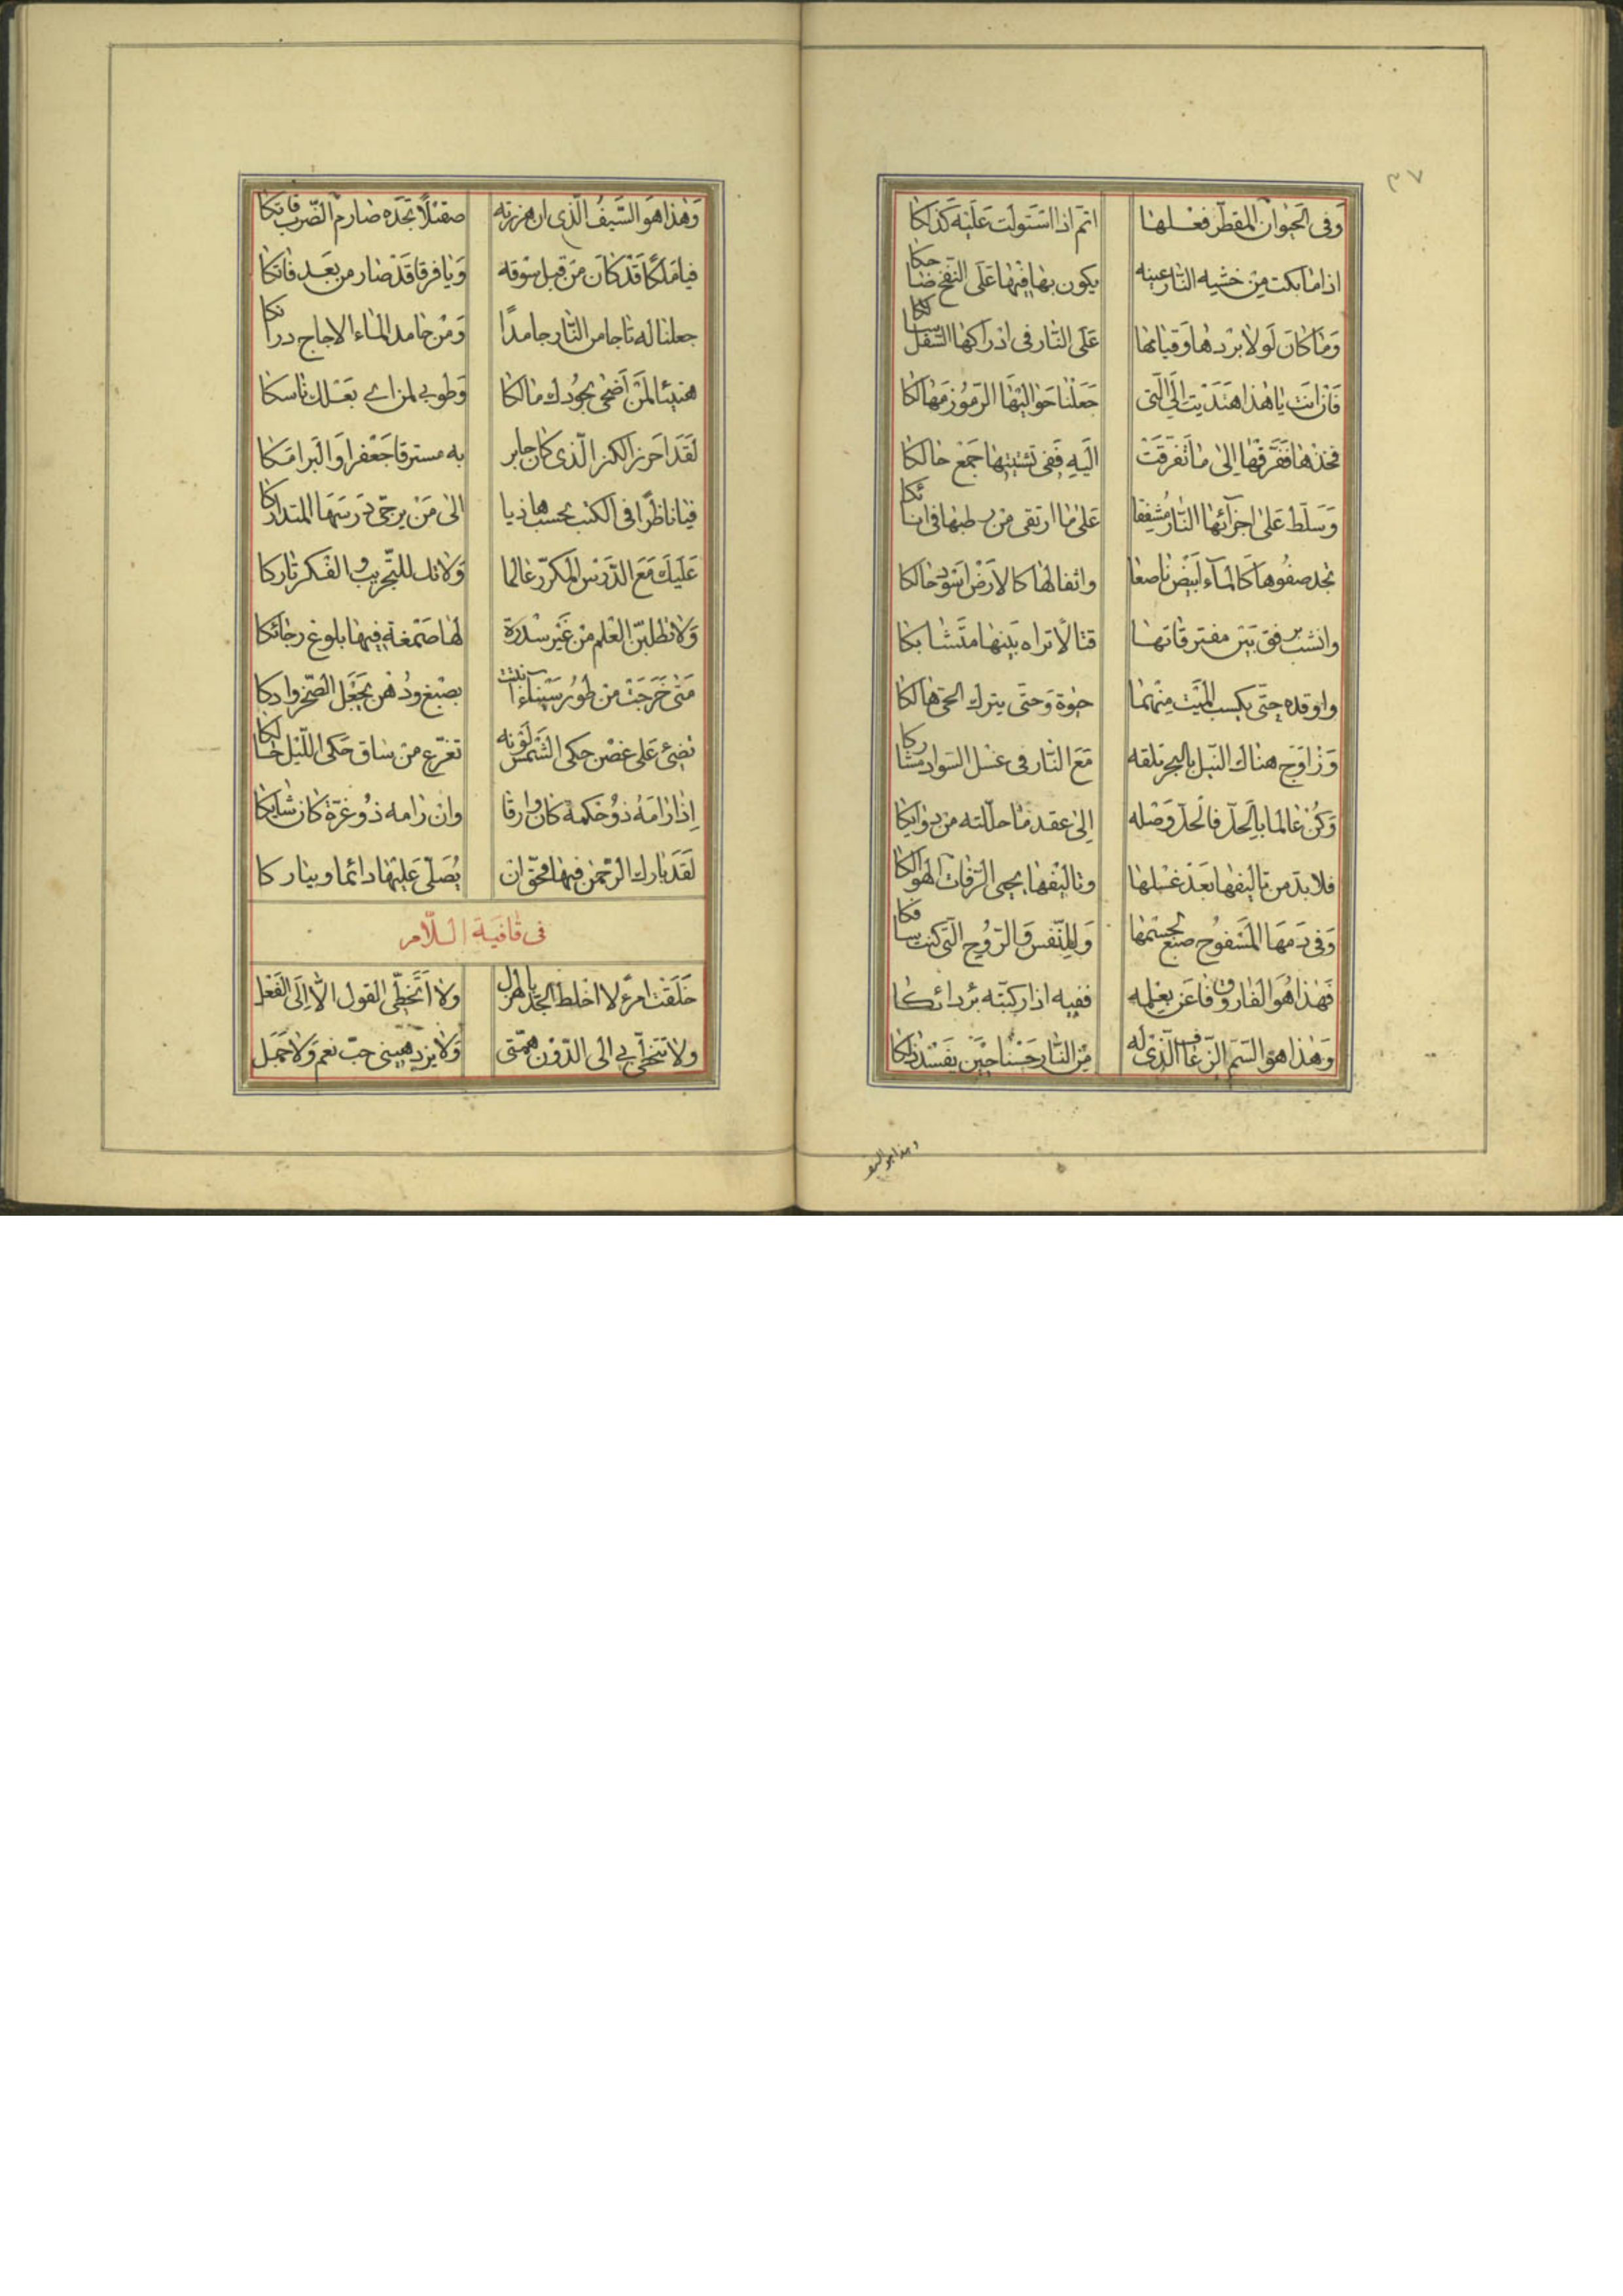 ٣٧
وَفى الحَيوان المقطّر فعلها اتمّ اذا استَولَت عَلَيْه كَذلكا
اذا ما بكت مِن خشيه النّار عينه يكون بها فيها عَلى النّفخ ضاحكا
وَما كانَ لَولا بَردها وَقيامها عَلى النّار فى ادراكها السّفل سالكا
فَان انت يا هذا اهتَدَيت الَى الّتى جَعَلْنا حَوالَيْها الرّموُز مَهالكا
فخذها فَفَرّقها اِلى ما تَفَرّقَتْ الَيهِ فَفى تشتيتها جمَع حالكا
وَسَلّط عَلى اجزآئها النّار مُشفِقا عَلى ما ارتقى من رطبها فى انائكا
تجد صفوُها كالمآء ابيَض ناصعا واثفالها كالارض اسَود حالكا
وانشب برفق بَين مفترقاتها قتالا تراه بَينها متَشابكا
واوقده حتّى يكسب الميّت منهما حيوة وَحتّى يترك الحىّ هالكا
وَزاوَج هناك النّيل بالبحر تلقه مَعَ النّار فى غسل السّواد مشاركا
وَكُن عالما بالحلّ فالحلّ وَصْله اِلى عقد ما حلّلته من
فلا بدّ من تاليفها بعَد غسلها وتاليفها يحيى الرّفات الهوالكا
وَفى دَمهَا المَسفوُح صبَغ لجسمها وَللنّفس وَالرّوُح الّتى كنت سافكا
فَهذا هُوَ الفاروق فاعَن بعِلمه ففيه اذا ركبّته برُ دائكا
وَهذا هوَ السّم الزّعاف الّذى له مِن النّار حَسْنا حِيَن
وهذا هو السيف
وَهذا هوَ السَّيفُ الّذى ان هززته صقيلاً تجَده صارم الضّرب فاتكا
فيا مَلَكًا قَدْ كانَ مَن قَبل سَوقه وَيا فرقا قَدْ صار من بَعَد فاتكا
جعلنا له تاجا من النّار جامدًا وَمن جامد الماء الاجاج درانكا
هنيئا لمَن اَضحى بجُودك مالكا وَطوبى لمن اى بعَلك ناسكا
لَقَد احرز الكنز الّذى كان جابر به مسترقا جَعْفرا وَالبَرامكا
فيا ناظرًا فى الكتب يحسب هاديا الى مَنْ يرجّى دَرسَها المتداركا
عَليَك مَعَ الدّرَس المكرّر عالما وَلا تك للتّجريب والفكر تاركا
وَلا تطلبنّ العلم من غَير سدرة لها صَمغة فيها بلوغ رجائكا
مَتى خَرَجَتْ من طوُر سَينآء انبتت بصبغ ودُهن يجَعَل الصّخر وادكا
تضىئ عَلى غصْن حكى الشّمسَ لَوْنه تفرّع من ساق حَكى اللّيل حالكا
اِذا رامَهُ ذوُ حكمة كان وارقا وان رامه ذوُ غرّة كان شابكا
لَقَد بارك الرّحمن فيها فحقّ ان يُصَلّى عَليَها دائما ويباركا
فى قافية اللّام
خلقت امرءً لا اخلط الجدّ بالهزل ولا اتَخطّى القول الّا اِلَى الفعل
ولا تتخطّى بى الى الدّوْن همّتى وَلا يزدهينى حبّ نعم وَلا جمَل